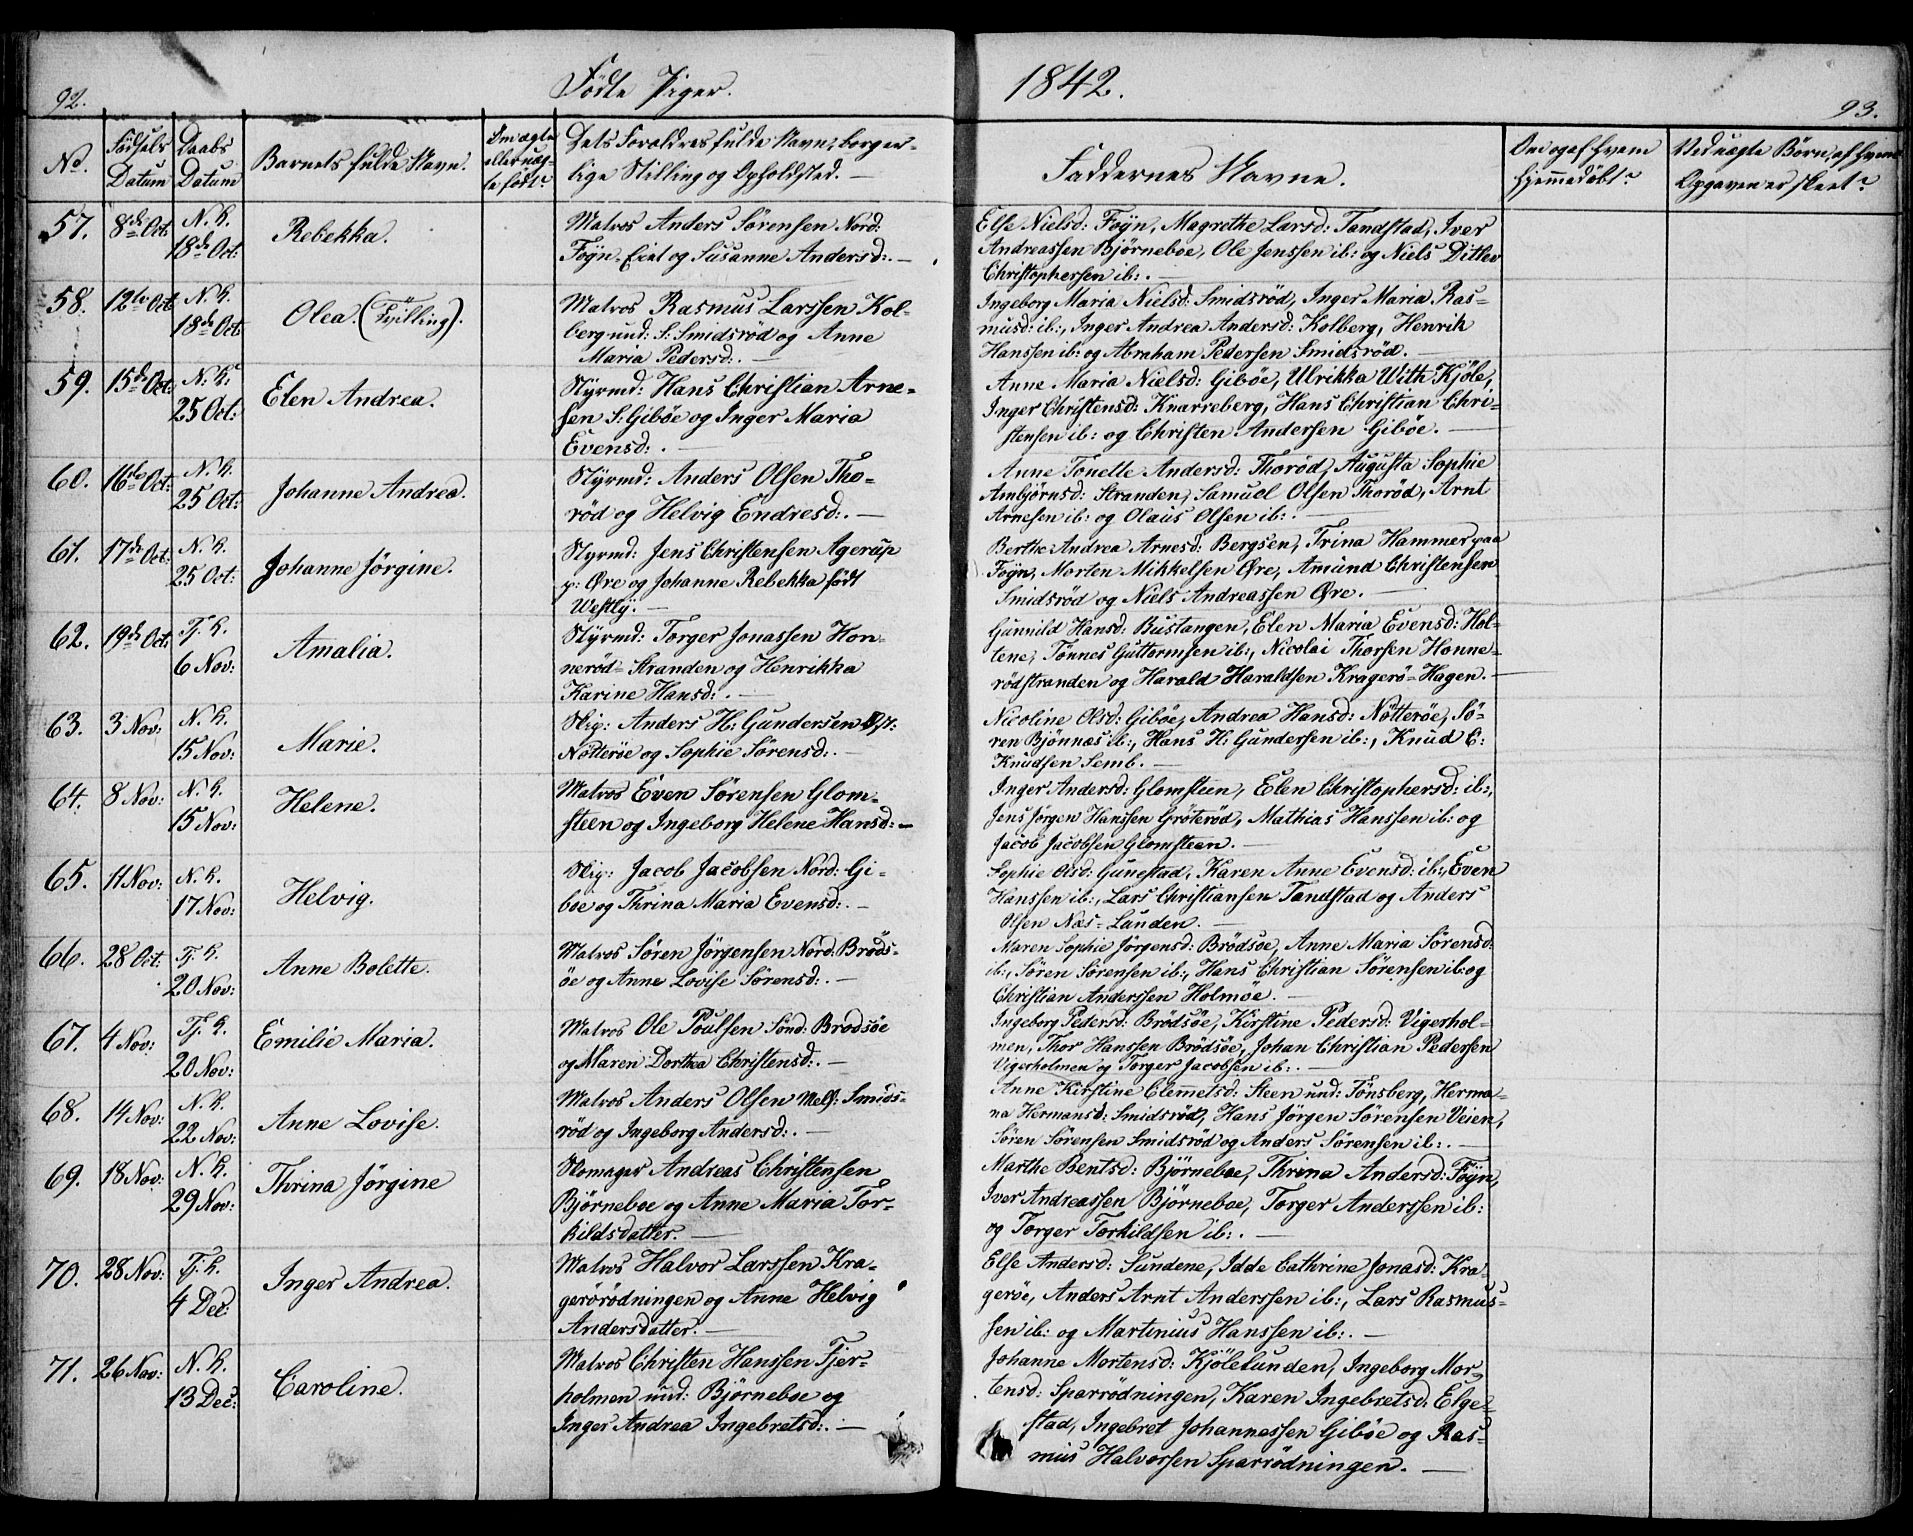 92.
Födte Piger.
1842.
93.
No.
Födsels
Datum
Daabs
Datum
Barnets fulde Navn.
Om ægte
eller uæg-
te födt?
Dets Forældres fulde Navn, borger-
lige Stilling og Opholdsted. —
Faddernes Navne.
Om og af hvem
hjemmedöbt?
Ved uægte Börn, af hvem
Opgaven er skeet?
57.
8de Oct:
N. K.
18de Oct:
Rebekka.
Matros Anders Sörensen Nord:
Föyn-Eiet og Susanne Andersd:. —
Else Nielsd: Föyn, Magrethe Larsd: Tandstad, Iver
Andreassen Björneboe, Ole Jenssen ib: og Niels Ditlev
Christophersen ib:. —
58.
12te Oct:
N. K.
18de Oct:
Olea. (Tvilling).
Matros Rasmus Larssen Kol-
berg und: S: Smidsröd og Anne
Maria Pedersd:. —
Ingeborg Maria Nielsd: Smidsröd, Inger Maria Ras-
musd: ib:, Inger Andrea Andersd: Kolberg, Henrik
Hanssen ib: og Abraham Pedersen Smidsröd. —
59.
15de Oct:
N. K.
25 Oct:
Elen Andrea.
Styrmd: Hans Christian Arne-
sen S: Giböe og Inger Maria
Evensd:. —
Anne Maria Nielsd: Giböe, Ulrikka With Kjöle,
Inger Christensd: Knarreberg, Hans Christian Chri-
stensen ib: og Christen Andersen Giböe. —
60.
16de Oct:
N. K.
25 Oct:
Johanne Andrea.
Styrmd: Anders Olsen Tho-
röd og Helvig Endresd:. —
Anne Tonette Andersd: Thoröd, Augusta Sophie
Ambjörnsd: Stranden, Samuel Olsen Thoröd, Arnt
Arnesen ib: og Olaus Olsen ib:.
61.
17de Oct:
N. K.
25 Oct:
Johanne Jörgine.
Styrmd: Jens Christensen Agerup
p: Øre og Johanne Rebekka födt
Westly. —
Berthe Andrea Arnesd: Bergsen, Trina Hammer paa
Föyn, Morten Mikkelsen Øre, Amund Christensen
Smidsröd og Niels Andreassen Øre. —
62.
19de Oct:
Tj. K.
6 Nov:
Amalia.
Styrmd: Torger Jonassen Hon-
neröd-Stranden og Henrikka
Karine Hansd:. —
Gunnild Hansd: Bustangen, Elen Maria Evensd: Hol-
tene, Tönnes Guttormsen ib:, Nicolai Thorsen Honne-
rödstranden og Harald Haraldsen Krageröe-Hagen. —
63.
3 Nov:
N. K.
15 Nov:
Marie.
Slig: Anders H: Gundersen
Nötteröe og Sophie Sörensd:. —
Nicoline Olsd: Giböe, Andrea Hansd: Nötteröe, Sö-
ren Björnnæs ib:, Hans H: Gundersen ib:, Knud C:
Knudsen Semb. —
64.
8 Nov:
N. K.
15 Nov:
Helene.
Matros Even Sörensen Glom-
steen og Ingeborg Helene Hansd: —
Inger Andersd: Glomsteen, Elen Christophersd: ib:,
Jens Jörgen Hanssen Gröteröd, Mathias Hanssen ib: og
Jacob Jacobsen Glomsteen. —
65.
11 Nov:
N. K.
17 Nov:
Helvig.
Slig: Jacob Jacobsen Nord: Gi-
böe og Thrina Maria Evensd:. —
Sophie Olsd: Gunestad, Karen Anne Evensd: ib:, Even
Hanssen ib:, Lars Christiansen Tandstad og Anders
Olsen Næs-Lunden. —
66.
28 Oct:
Tj. K.
20 Nov:
Anne Bolette.
Matros Sören Jörgensen Nord: Bröds-
öe og Anne Lovise Sörensd:. —
Maren Sophie Jörgensd: Brödsöe, Anne Maria Sörensd:
ib:, Sören Sörensen ib:, Hans Christian Sörensen ib: og
Christian Anderssen Holmöe. —
67.
4 Nov:
Tj. K.
20 Nov:
Emilie Maria.
Matros Ole Poulsen Sönd: Brödsöe
og Maren Dorthea Christensd:. —
Ingeborg Pedersd: Brödsöe, Kirstine Pedersd: Vigerhol-
men, Thor Hanssen Brödsöe, Johan Christian Pedersen
Vigerholmen og Torger Jacobsen ib:. —
68.
14 Nov:
N. K.
22 Nov:
Anne Lovise.
Matros Anders Olsen Mell: Smids-
röd og Ingeborg Andersd:. —
Anne Kirstine Clemetsd: Steen und: Tönsberg, Herma-
na Hermansd: Smidsröd, Hans Jörgen Sörensen Veien,
Sören Sörensen Smidsröd og Anders Sörensen ib:. —
69.
18 Nov:
N. K.
29 Nov:
Thrina Jörgine
Skomager Andreas Christensen
Björneboe og Anne Maria Tor-
kildsdatter. —
Marthe Bentsd: Björneboe, Thrina Andersd: Föyn,
Iver Andreassen Björneboe, Torger Anderssen ib:
og Torger Torkildsen ib:. —
70.
28 Nov:
Tj. K.
4 Dec:
Inger Andrea.
Matros Halvor Larssen Kra-
gerörödningen og Anne Helvig
Andersdatter. —
Else Andersd: Sundene, Idde Cathrine Jonasd: Kra-
geröe, Anders Arnt Anderssen ib:, Lars Rasmus-
sen ib: og Martinius Hanssen ib:. —
71.
26 Nov:
N. K.
13 Dec:
Caroline.
Matros Christen Hanssen Fjer-
holmen und: Björneboe og
Inger Andrea Ingebretsd:. —
Johanne Mortensd: Kjölelunden, Ingeborg Mor-
tensd: Sparrödningen, Karen Ingebretsd: Elge-
stad, Ingebret Johannessen Giböe og Ras-
mus Halvorsen Sparrödningen. —